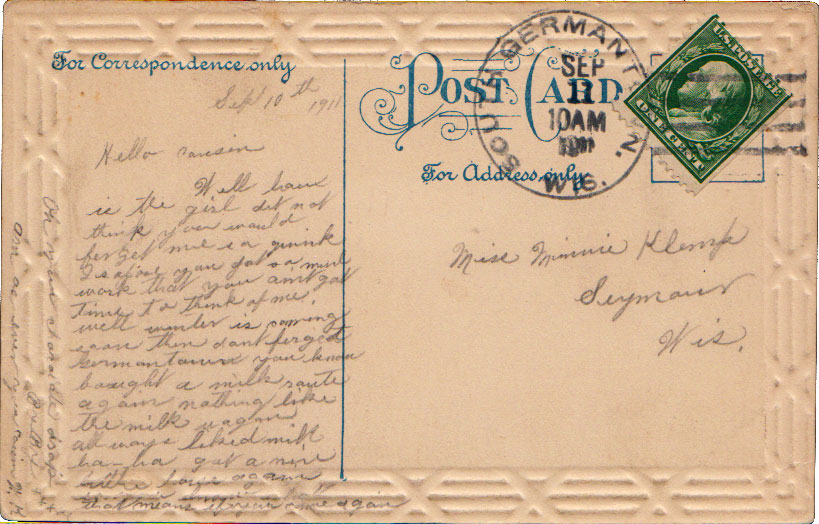 For Correspondence only
POST CARD
For Address only
SOUTH GERMANTOWN.
WIS.
SEP
11
10AM
1911
U.S. POSTAGE
ONE CENT
Sep 10th
1911
Hello cousin
Well how
is the girl dit not
think you would
forget me so quick
I you got so much
work that you aint got
time to think of me.
well winter is coming
soon then dont forget
Germantown you know
bought a milk route
again nothing like
the milk wagon
always liked milk
ha-ha got a nice
again
that means if you come again
Oh you
am as ever your cousin
Miss Minnie Klemp
Seymour
Wis.